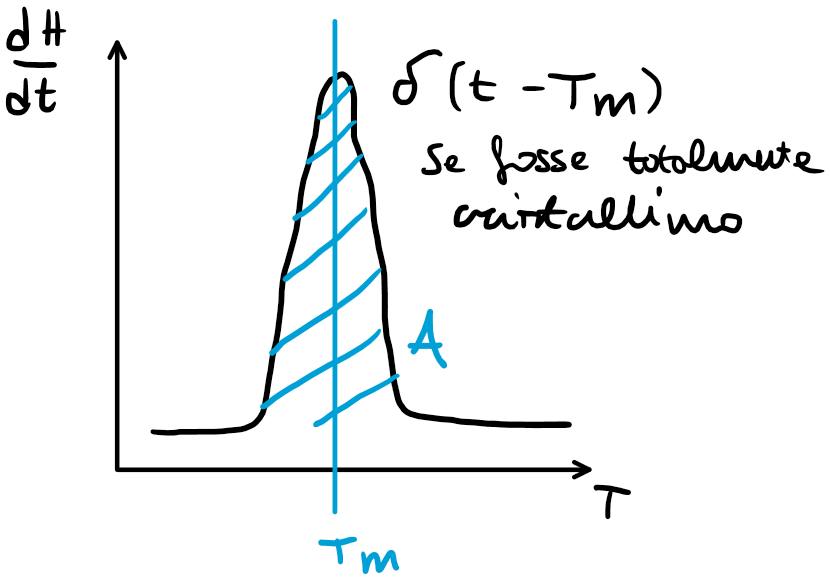 dH
dt
δ(t - Tm)
se fosse totalmente
cristallino
A
T
Tm